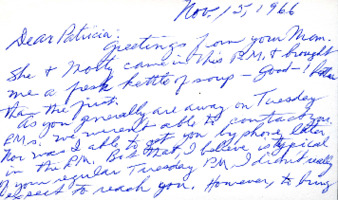 Nov. 15, 1966
Dear Patricia:
Greetings from your Mom.
She & Molly came in this P.M. & brought
me a fresh kettle of soup - good - ! better
than the first.
As you generally are away on Tuesday
P.M.s. we weren't able to contact you.
Nor was I able to get you by phone, later,
in the P.M. But that, I believe is typical
of your regular Tuesday P.M. I didn't really
expect to reach you. However, to bring